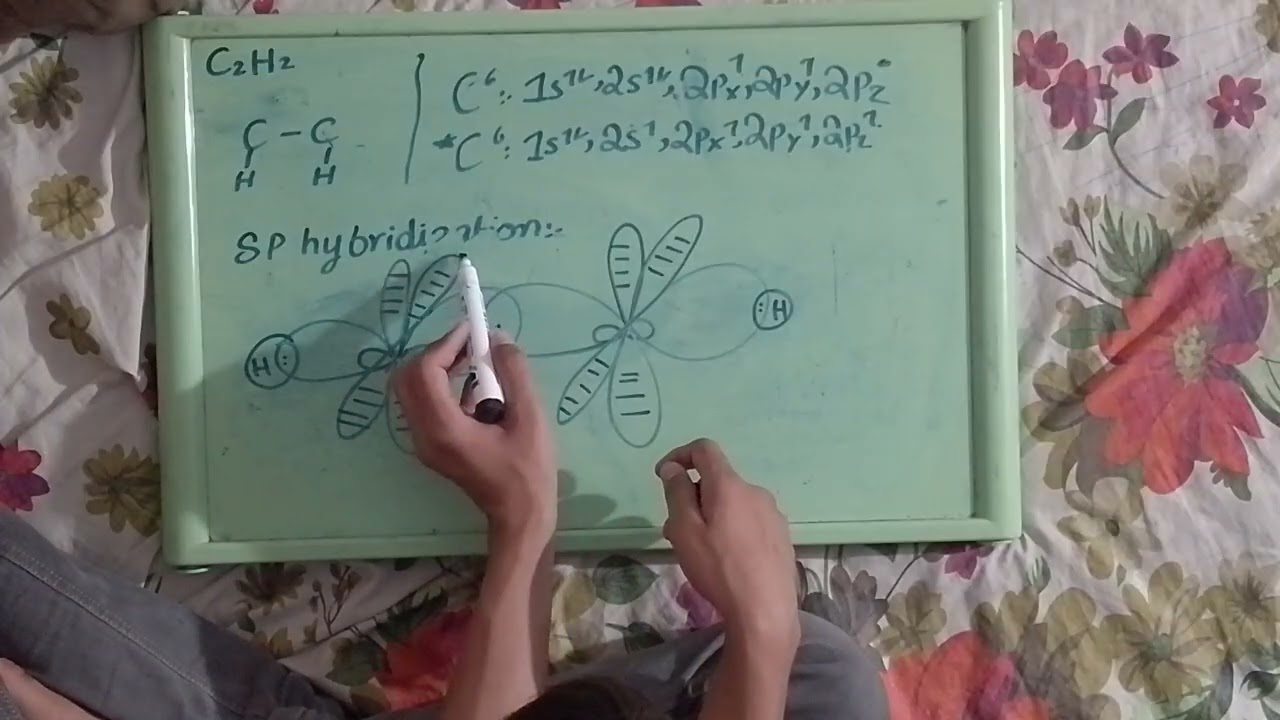 C2H2
C6: 1s1L, 2s1L, 2Px1, 2Py1, 2Pz°
C - C
*C6: 1s1L, 2s1, 2Px1, 2Py1, 2Pz1
H H
SP hybridization:-
H : : H